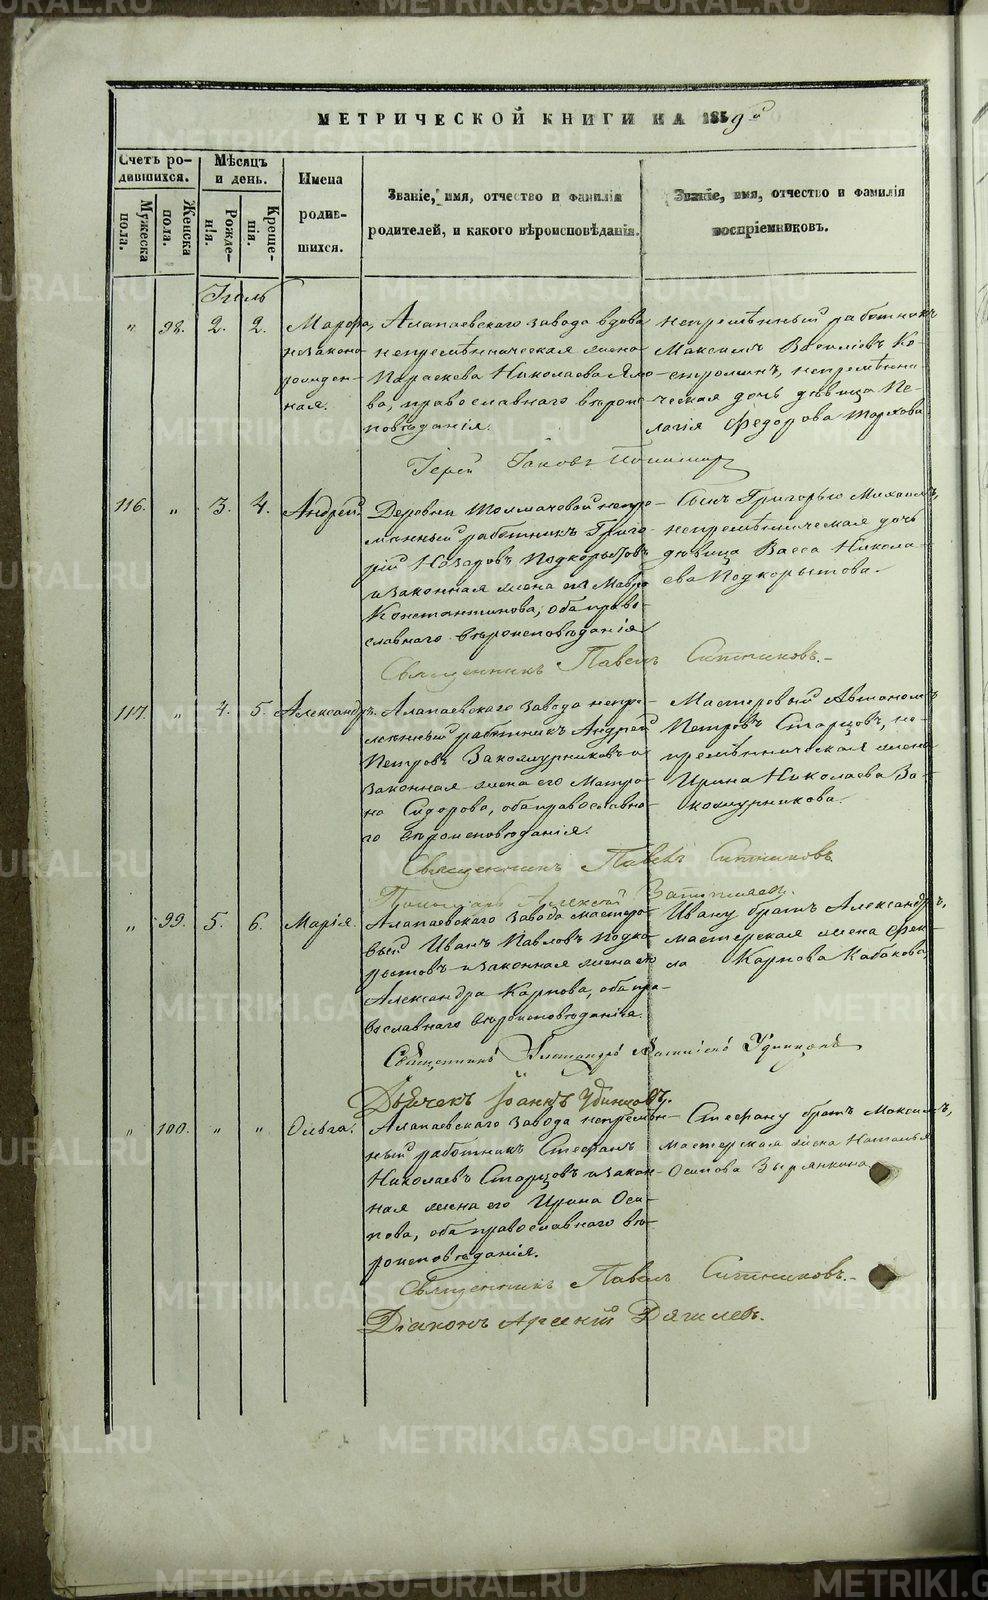 МЕТРИЧЕСКОЙ КНИГИ НА 1859й
Счетъ ро-
дившихся.
Мужеска
пола.
Женска
пола.
Мѣсяцъ
и день.
Рожде-
нія.
Креще-
нія.
Имена
родив-
шихся.
Званіе, имя, отчество и фамилія
родителей, и какого вѣроисповѣданія.
Званіе, имя, отчество и фамилія
воспріемниковъ.
Іюль
" 98. 2. 2.
незаконо-
рожден-
ная.
Алапаевскаго завода вдова
непремѣнническая жена
Параскева Николаева
ва, православнаго вѣроис-
повѣданія.
непремѣнный работникъ
Максимъ Василіевъ Ко-
строминъ, непремѣнни-
ческая дочь дѣвица Пе-
лагія Федорова
Іерей Іаковъ
116. " 3. 4. Андрей.
Деревни Толмачевой непре-
мѣнный работникъ Григо-
рій Назаровъ Подкорытовъ
и законная жена его Мавра
Константинова, оба право-
славнаго вѣроисповѣданія
Сынъ Григорью Михаилъ,
непремѣнническая дочь
дѣвица Васса Никола-
ева Подкорытова.
Священникъ Павелъ Ситниковъ.
117. " 4. 5. Александръ.
Алапаевскаго завода непре-
мѣнный работникъ Андрей
Петровъ Закожурниковъ и
законная жена его Матро-
на Сидорова, оба православна-
го вѣроисповѣданія.
Мастеровый Автаномъ
Петровъ Старцовъ, не-
премѣнническая жена
Ирина Николаева За-
кожурникова.
Священникъ Павелъ Ситниковъ
Пономарь Алексѣй
" 99. 5. 6. Марія.
Алапаевскаго завода мастеро-
вый Иванъ Павловъ Подко-
рытовъ и законная жена его
Александра Карпова, оба пра-
вославнаго вѣроисповѣданія.
Ивану братъ Александръ,
мастерская жена Фек-
ла Карпова Кабакова,
Священникъ Александръ Удинцовъ
Дьячекъ Іоаннъ Удинцовъ.
" 100. " " Ольга.
Алапаевскаго завода непремѣн-
ный работникъ Стефанъ
Николаевъ Старцовъ и закон-
ная жена его Ирина Оси-
пова, оба православнаго вѣ-
роисповѣданія.
Стефану братъ Максимъ,
мастерская жена Наталья
Осипова Зырянкина
Священникъ Павелъ Ситниковъ.
Діаконъ Арсеній Дягилевъ.
METRIKI.GASO-URAL.RU